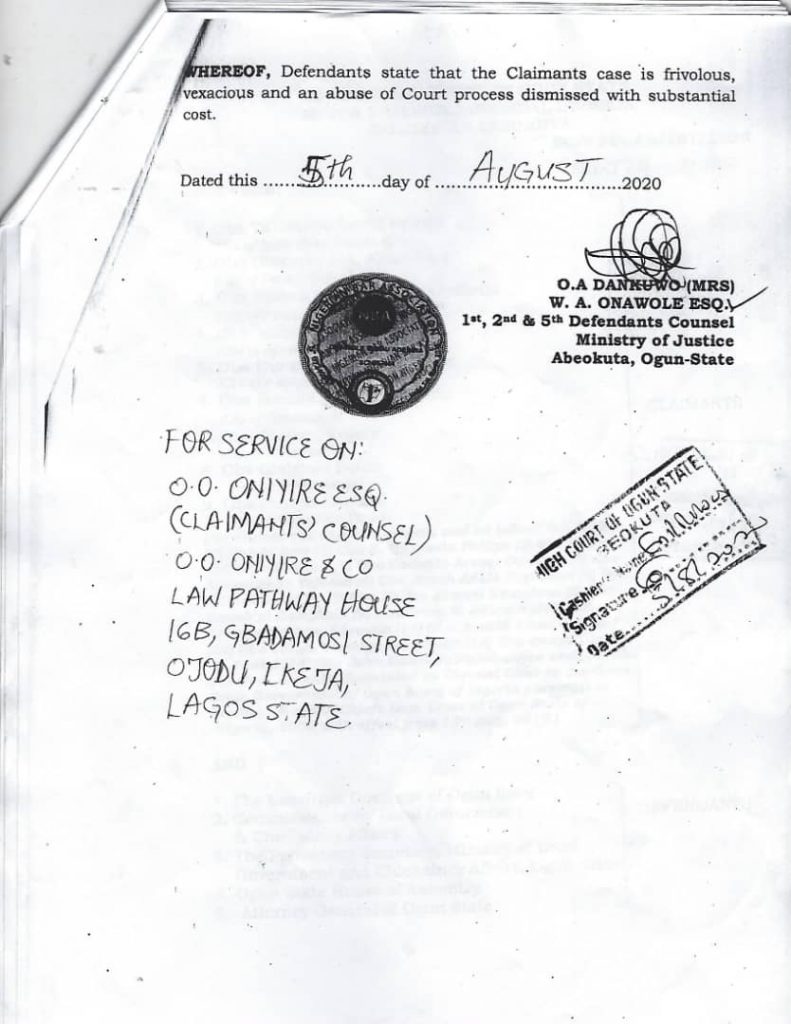 WHEREOF, Defendants state that the Claimants case is frivolous,
vexacious and an abuse of Court process dismissed with substantial
cost.
Dated this ........5th............day of ....AUGUST....2020
O.A DANKUWO (MRS)
W. A. ONAWOLE ESQ.
1st, 2nd & 5th Defendants Counsel
Ministry of Justice
Abeokuta, Ogun-State
NIGERIAN BAR ASSOCIATION
NBA
FOR SERVICE ON:
O.O. ONIYIRE ESQ.
(CLAIMANTS' COUNSEL)
O.O. ONIYIRE & CO
LAW PATHWAY HOUSE
16B, GBADAMOSI STREET,
OJODU, IKEJA,
LAGOS STATE.
HIGH COURT OF OGUN STATE
ABEOKUTA
Cashier's Name
Signature
Date 5/8/2020